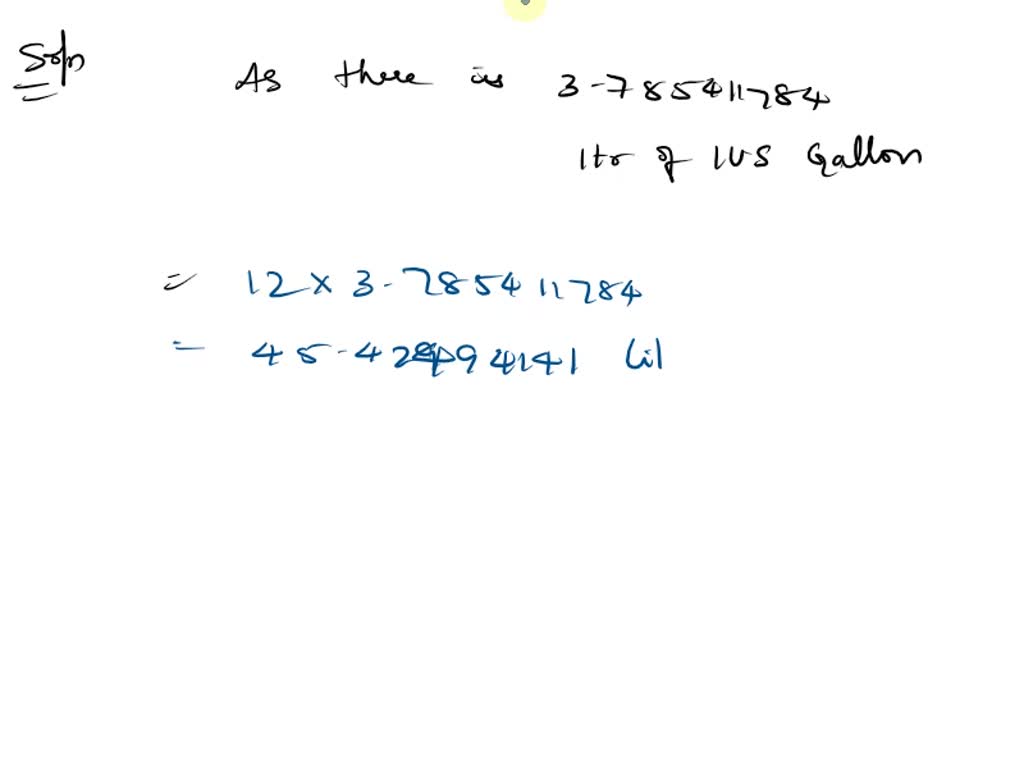 Soln
As there is 3-785411784
ltr of 1US Gallon
= 12 x 3-785411784
= 45-429494141 lil